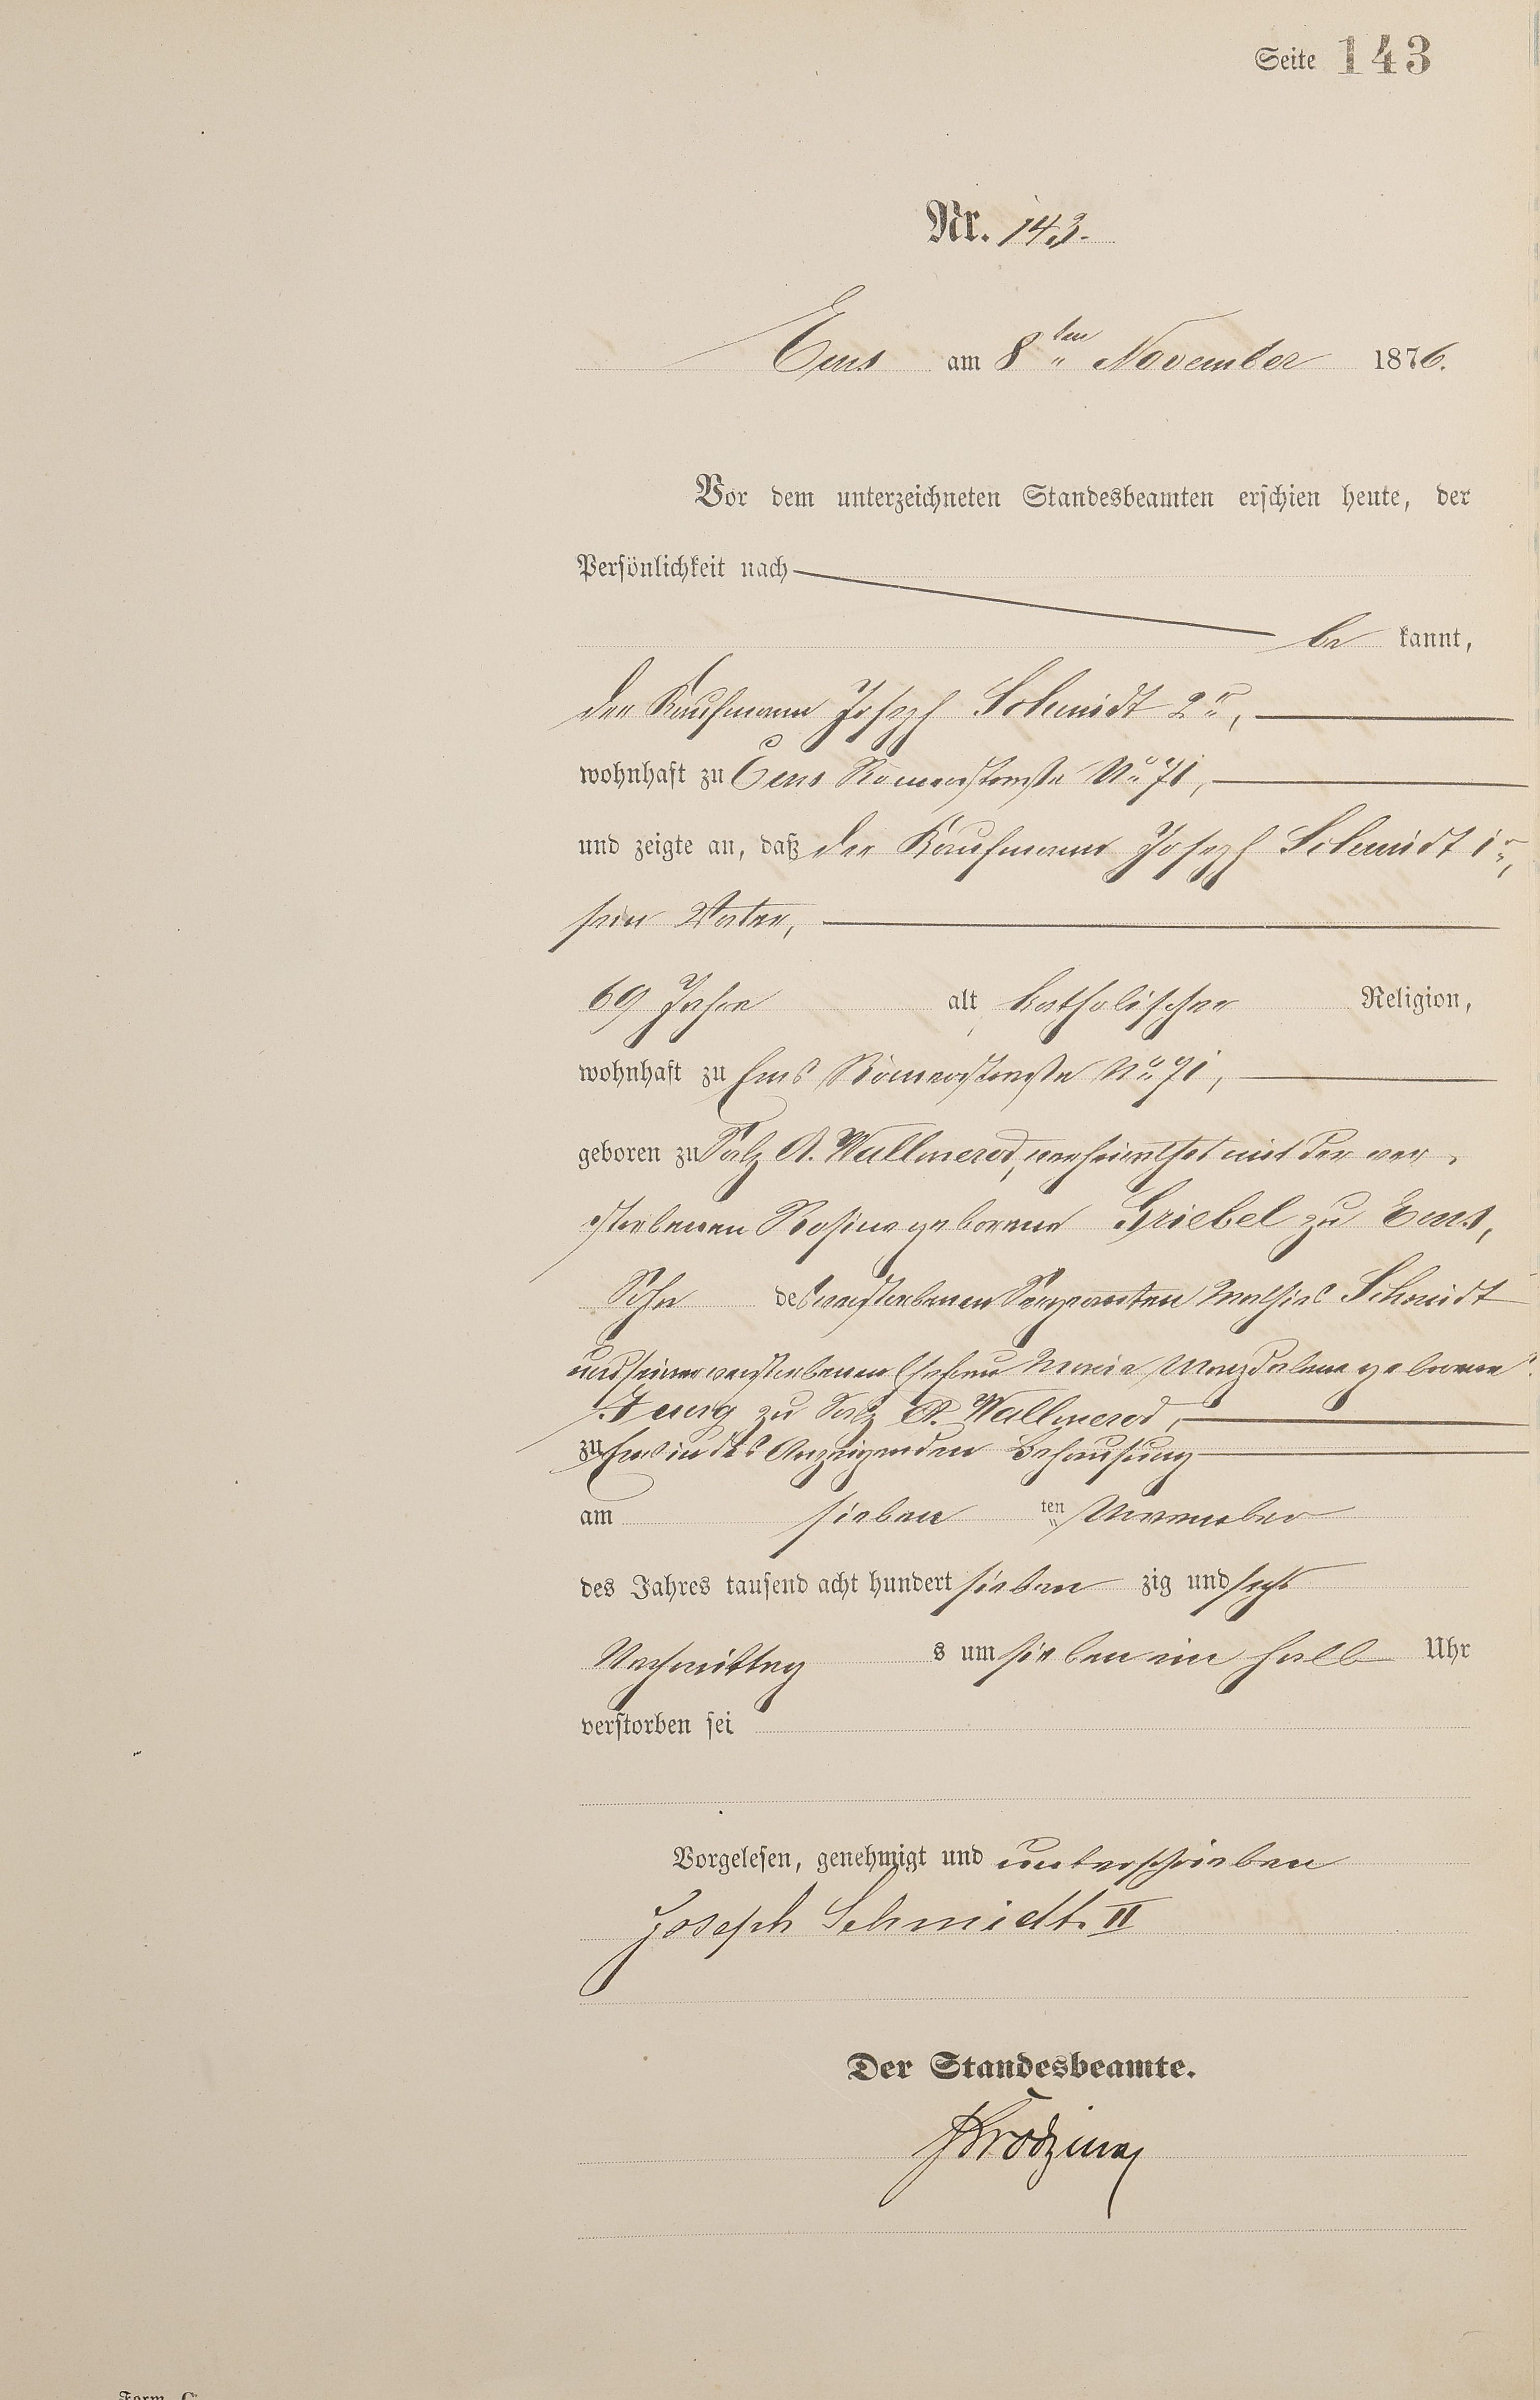 Seite 143
Nr. 143.
Ems am 8ten November 1876.
Vor dem unterzeichneten Standesbeamten erschien heute, der
Persönlichkeit nach
be kannt,
der Kaufmann Joseph Schmidt 2r,
wohnhaft zu Ems Römerstraße No 71,
und zeigte an, daß der Kaufmann Joseph Schmidt 1r,
sein Vater,
69 Jahre alt katholischer Religion,
wohnhaft zu Ems Römerstraße No 71,
geboren zu Salz A. Wallmerod, verheirathet mit der ver
storbenen Rosina geborene Griebel zu Ems,
Sohn des verstorbenen Sergeanten Mathias Schmidt
und seiner verstorbenen Ehefrau Maria Magdalena geborene
Jung zu Salz A. Wallmerod,
zu Ems in des Anzeigenden Behausung
am sieben ten November
des Jahres tausend acht hundert sieben zig und sechs
Nachmittag s um sieben ein halb Uhr
verstorben sei
Vorgelesen, genehmigt und unterschrieben
Joseph Schmidt II
Der Standesbeamte.
Form. C.